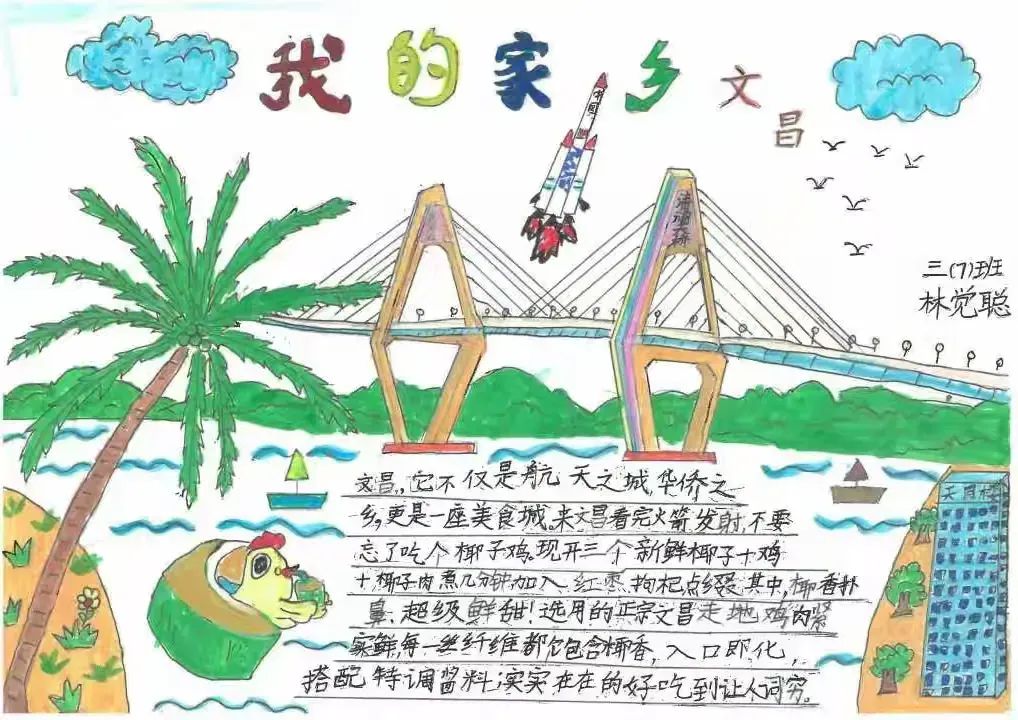 我的家乡文昌
中国
清澜大桥
三(7)班
林觉聪
天同楼
文昌,它不仅是航天之城,华侨之
乡,更是一座美食城,来文昌看完火箭发射,不要
忘了吃个椰子鸡,现开三个新鲜椰子十鸡
十椰子肉煮几分钟,加入红枣枸杞点缀其中,椰香扑
鼻,超级鲜甜!选用的正宗文昌走地鸡肉紧
实鲜,每一丝纤维都包含椰香,入口即化,
搭配特调酱料,实实在在的好吃到让人词穷。